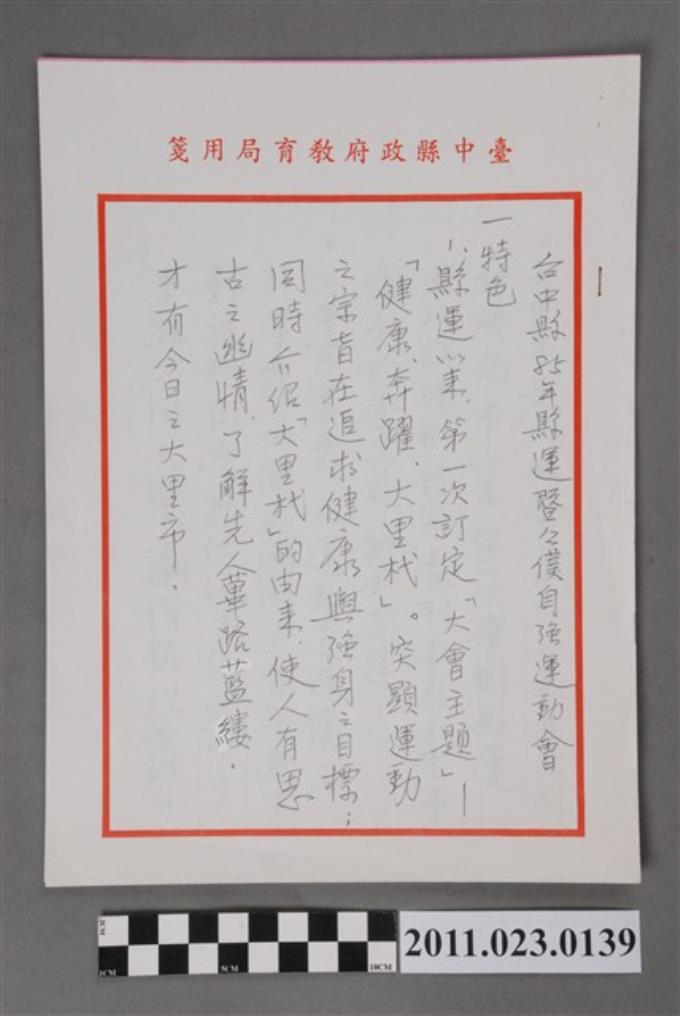 臺中縣政府教育局用箋
台中縣85年縣運暨公僕自強運動會
一特色
1、縣運以來,第一次訂定「大會主題」—
「健康、奔躍、大里杙」。突顯運動
之宗旨在追求健康與強身之目標;
同時介紹「大里杙」的由來,使人有思
古之幽情,了解先人蓽路藍縷.
才有今日之大里市.
1CM
5CM
10CM
2011.023.0139